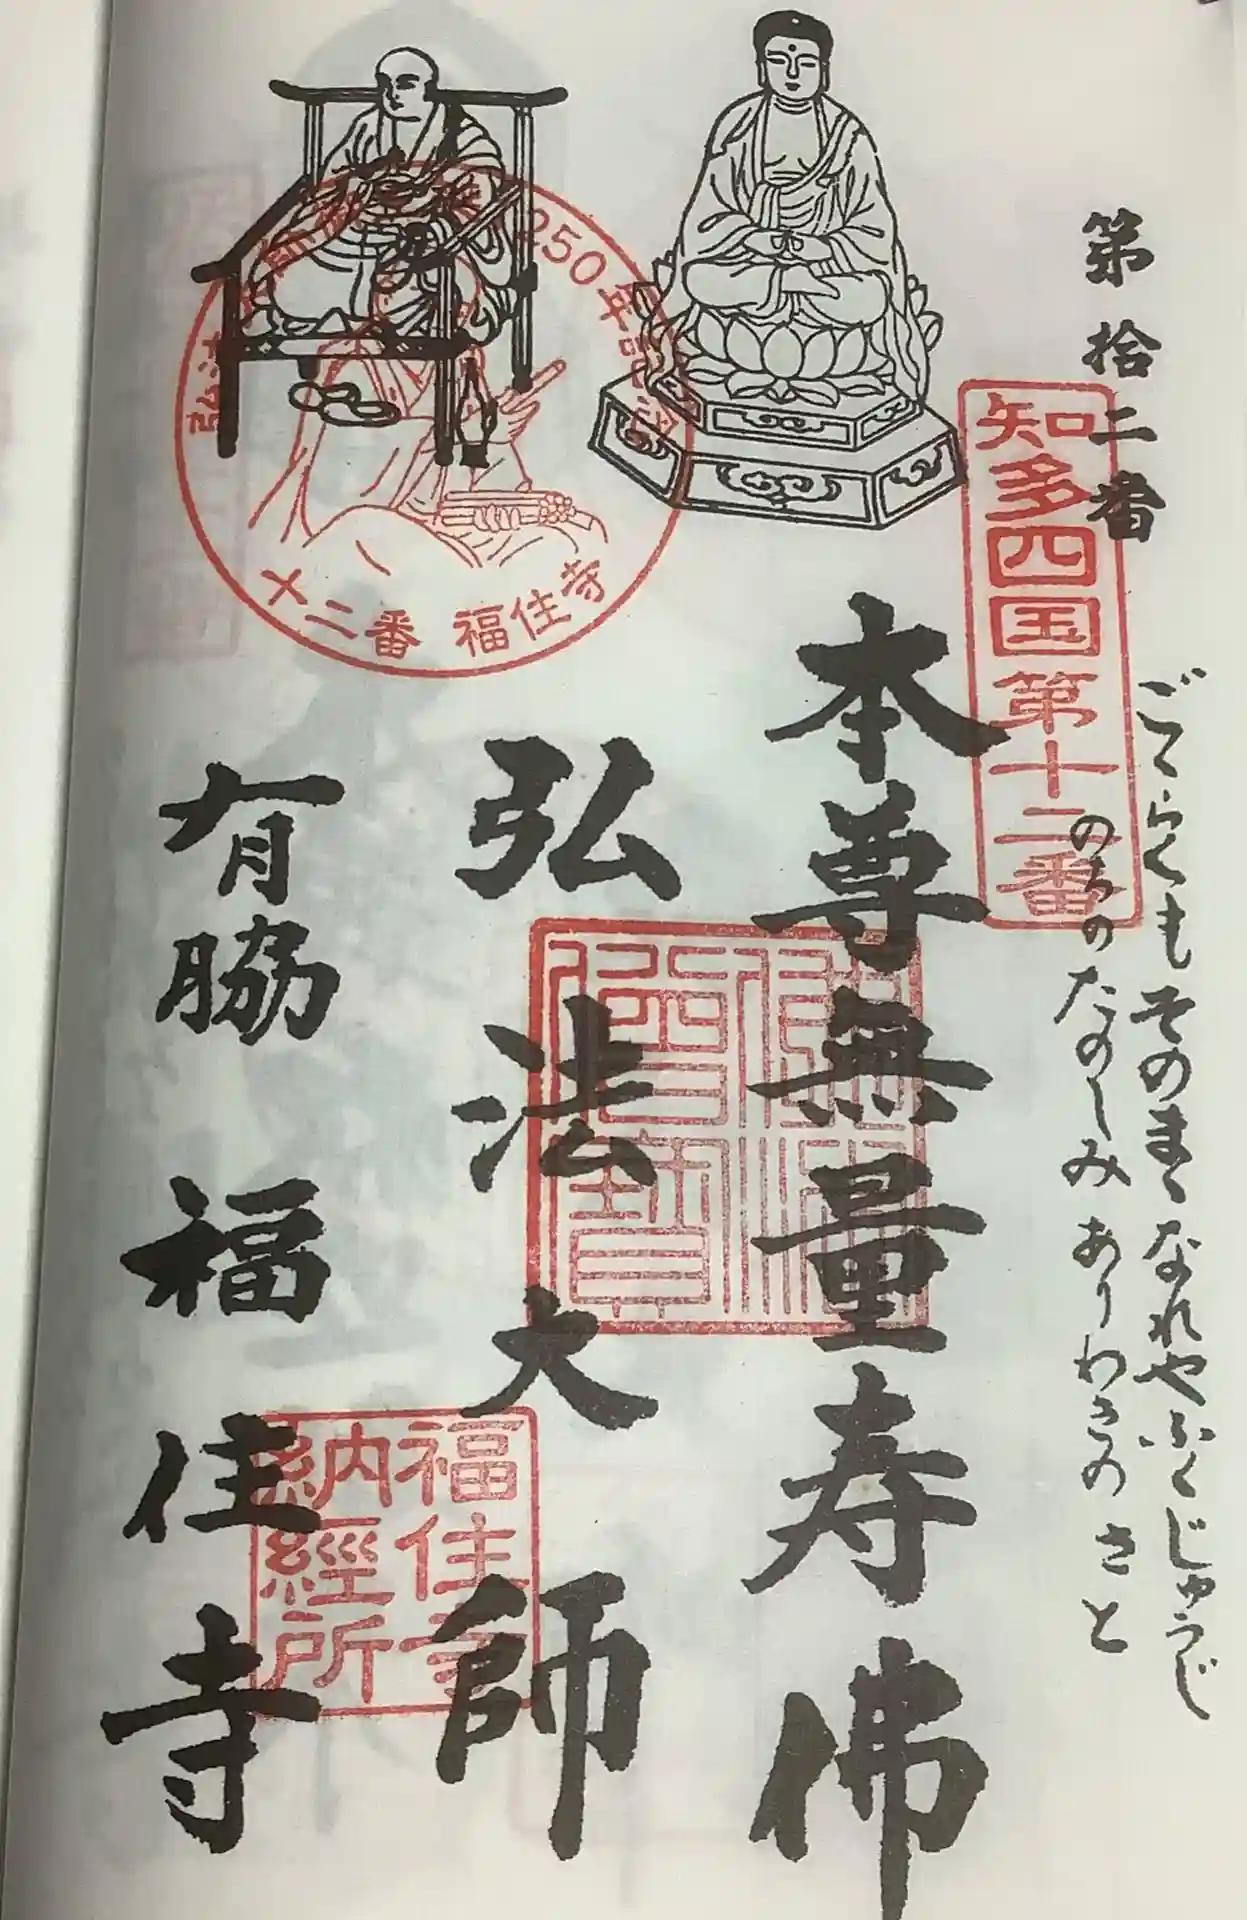 第拾二番
ごくらくもそのまゝなれやふくじゅうじ
のちのたのしみありわきのさと
知多四国第十二番
本尊無量寿佛
弘法大師
有脇 福住寺
250年記念
十二番 福住寺
佛法
僧寶
福住寺
納經所